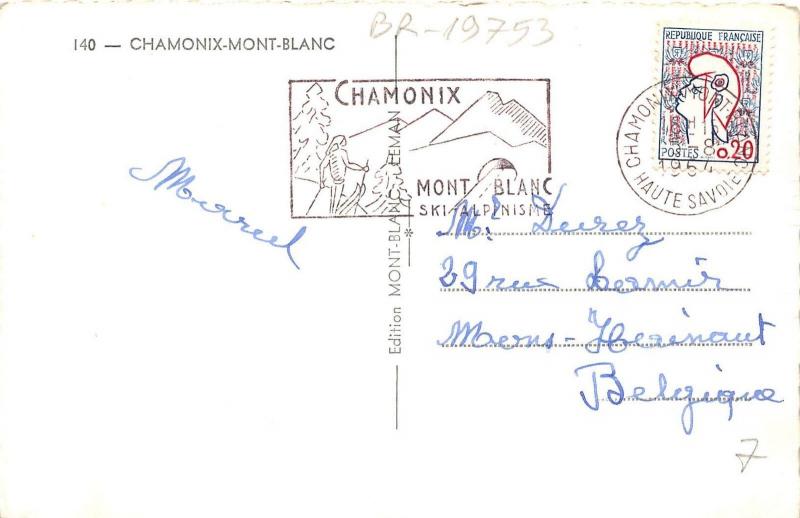 BR-19753
140 — CHAMONIX-MONT-BLANC
REPUBLIQUE FRANÇAISE
POSTES 0.20
CHAMONIX
MONT BLANC
SKI-ALPINISME
CHAMONIX
18H
-8
1964
HAUTE SAVOIE
Marcel
Edition MONT-BLANC
Mr. Durez
29 rue
Mons-Hainaut
Belgique
7